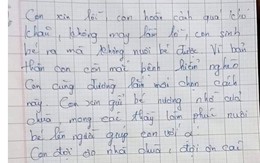 Con xin lỗi, con hoàn cảnh quá khó
khăn, không may lầm lỡ, con sinh
bé ra mà không nuôi bé được Vì bản
thân con còn mắc bệnh hiểm nghèo
Con cùng đường lắm mới chọn cách
này. Con xin gửi bé nương nhờ cửa
chùa, mong các thầy làm phúc nuôi
bé lên người giúp con với ạ
Con đội ơn nhà chùa, đội ơn các